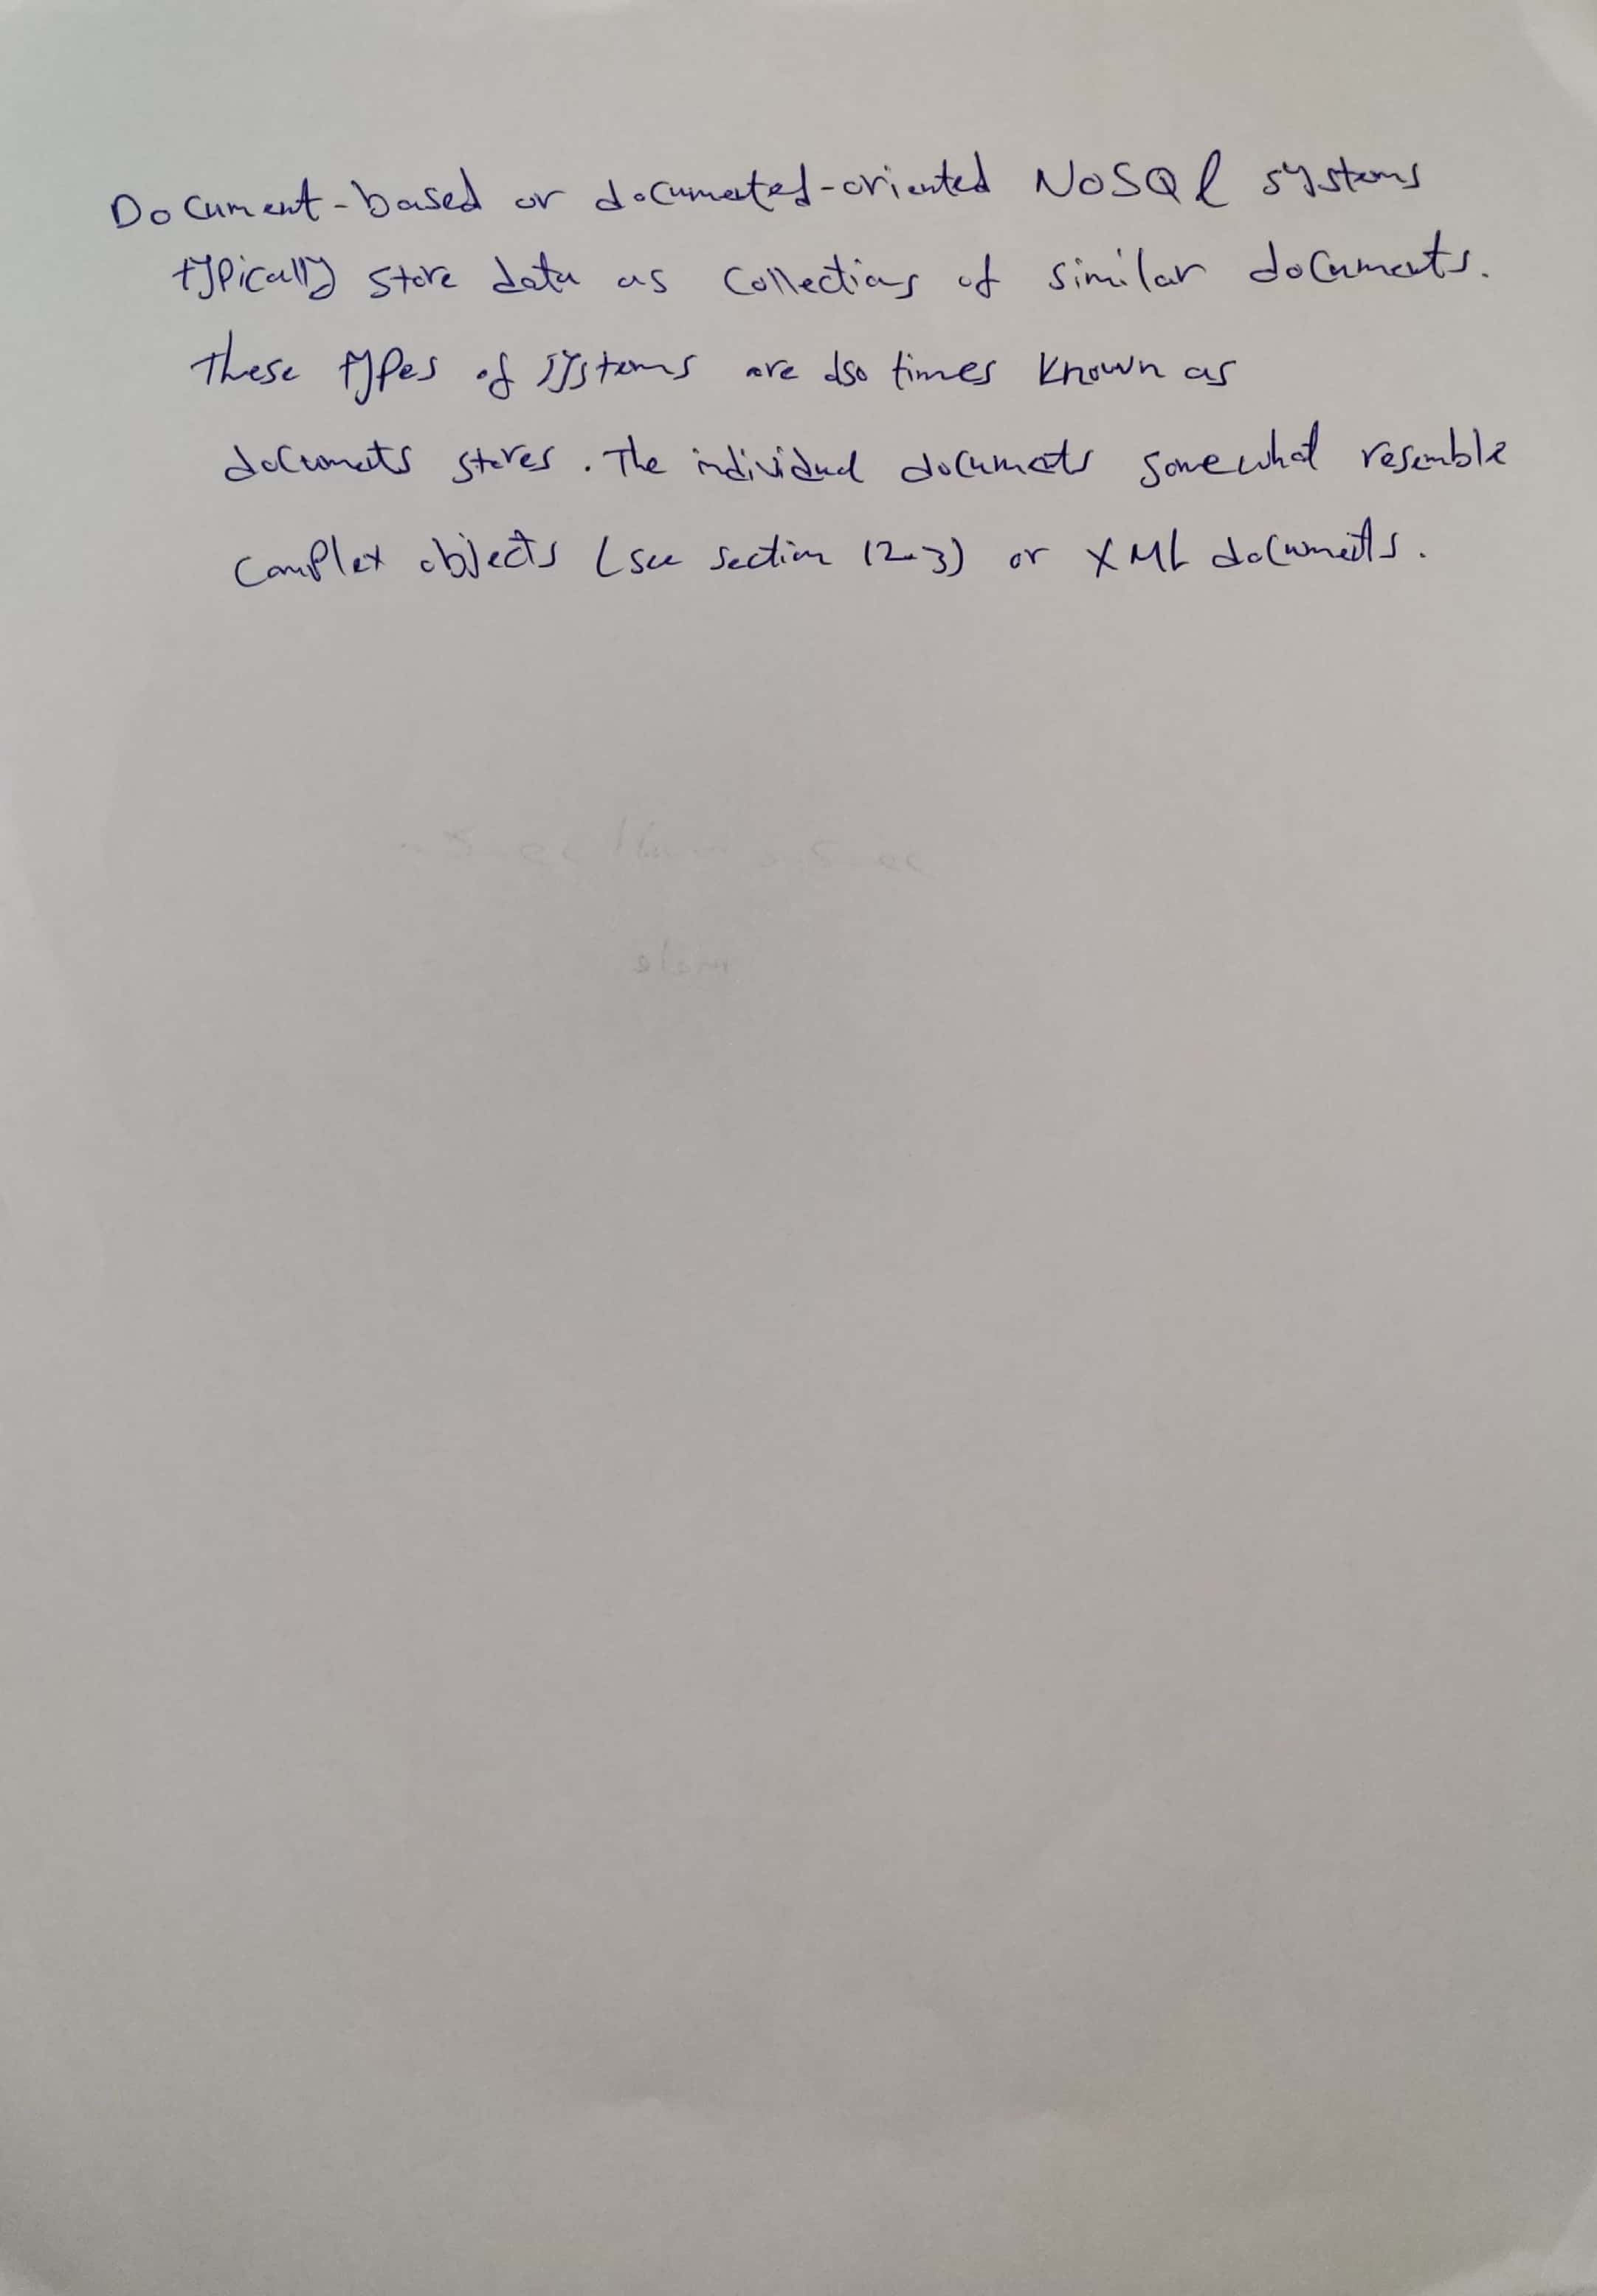 Document-based or documented-oriented NoSQL systems
typically store data as collections of similar documents.
These types of systems are also times known as
documents stores. The individual documents somewhat resemble
complex objects (see section 12.3) or XML documents.